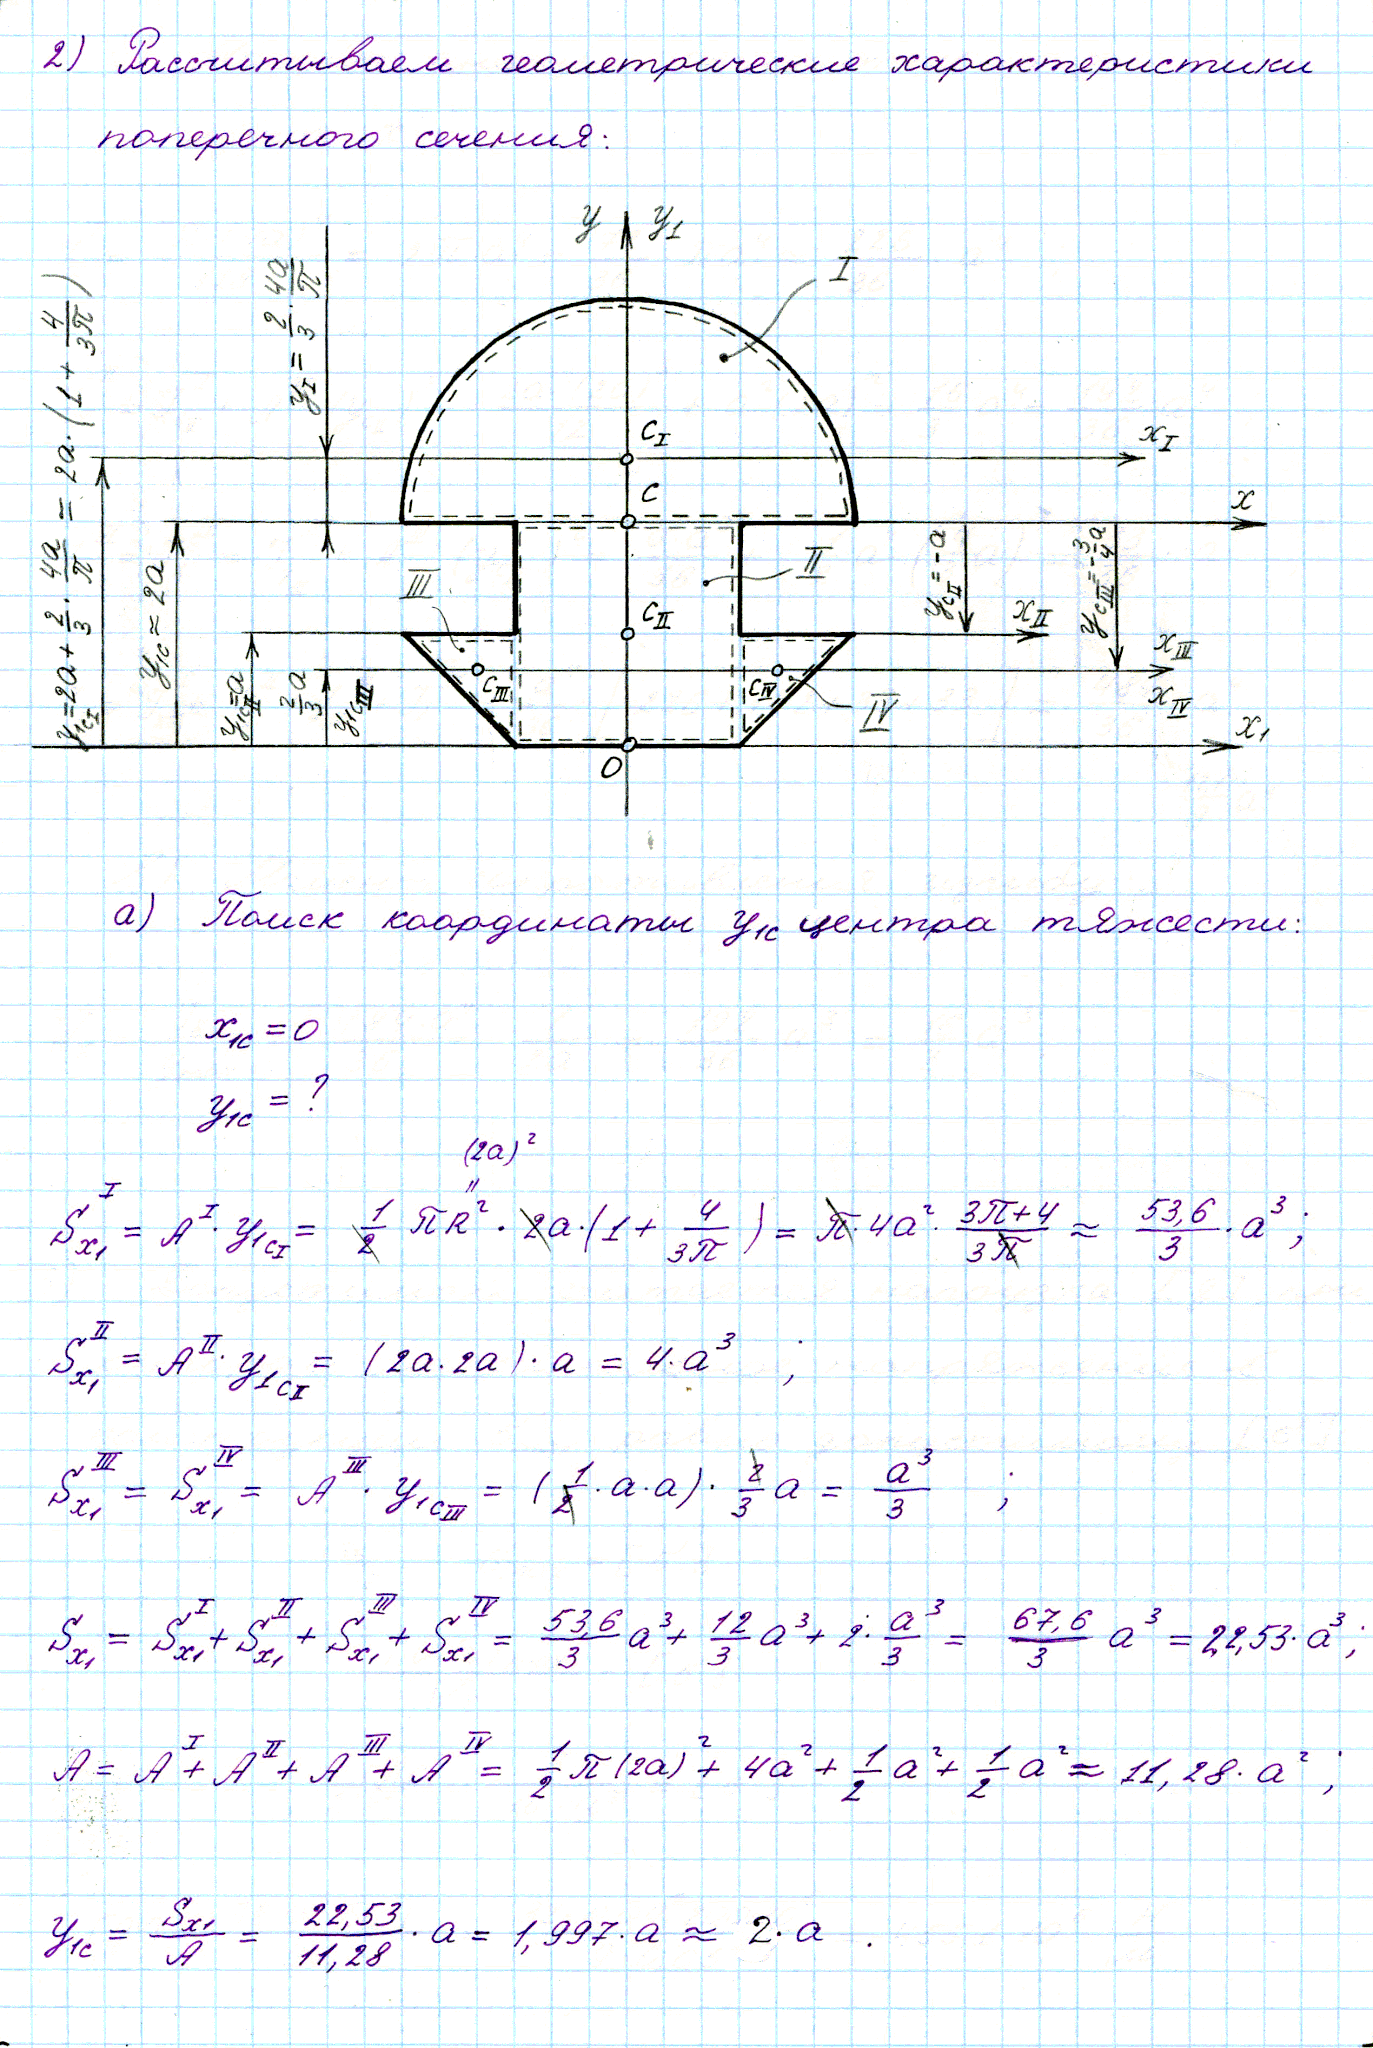 2) Рассчитываем геометрические характеристики
поперечного сечения:
y y₁
I
y_I = 2/3 · 4a/π
y₁c_I = 2a + 2/3 · 4a/π = 2a·(1 + 4/3π)
c_I
x_I
c
x
y₁c ≈ 2a
III
II
y_cII = -a
y_cIII = -3/4 a
c_II
x_II
y₁c_II = a
2/3 a
y₁c_III
c_III
c_IV
IV
x_III
x_IV
x₁
O
а) Поиск координаты y₁c центра тяжести:
x₁c = 0
y₁c = ?
(2a)²
"
S_x₁^I = A^I · y₁c_I = 1/2 πR² · 2a·(1 + 4/3π) = π·4a² · (3π+4)/3π ≈ 53,6/3 · a³ ;
S_x₁^II = A^II · y₁c_I = (2a·2a)·a = 4·a³ ;
S_x₁^III = S_x₁^IV = A^III · y₁c_III = (1/2 ·a·a) · 2/3 a = a³/3 ;
S_x₁ = S_x₁^I + S_x₁^II + S_x₁^III + S_x₁^IV = 53,6/3 a³ + 12/3 a³ + 2· a³/3 = 67,6/3 a³ = 22,53·a³ ;
A = A^I + A^II + A^III + A^IV = 1/2 π(2a)² + 4a² + 1/2 a² + 1/2 a² ≈ 11,28·a² ;
y₁c = S_x₁/A = 22,53/11,28 · a = 1,997·a ≈ 2·a .